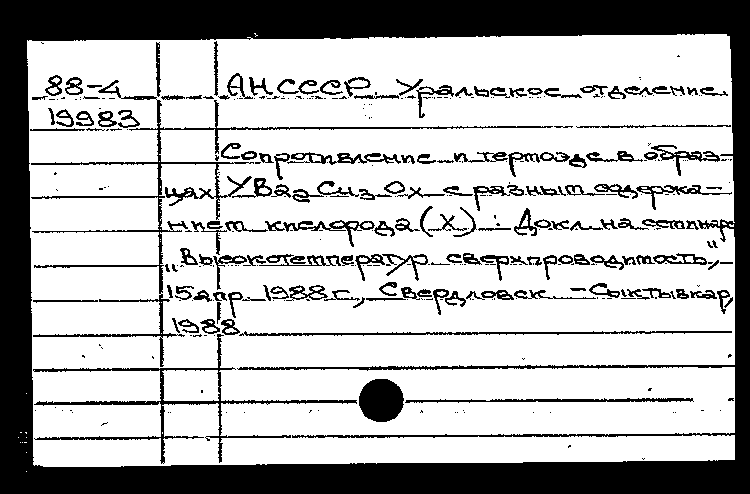 88-4 АН СССР. Уральское отделение.
19983
Сопротивление и термоэдс в образ-
цах YBa2 Cu3 Ox с разным содержа-
нием кислорода (X) : Докл. на семинаре
„Высокотемператур. сверхпроводимость",
15 апр. 1988 г., Свердловск. - Сыктывкар,
1988